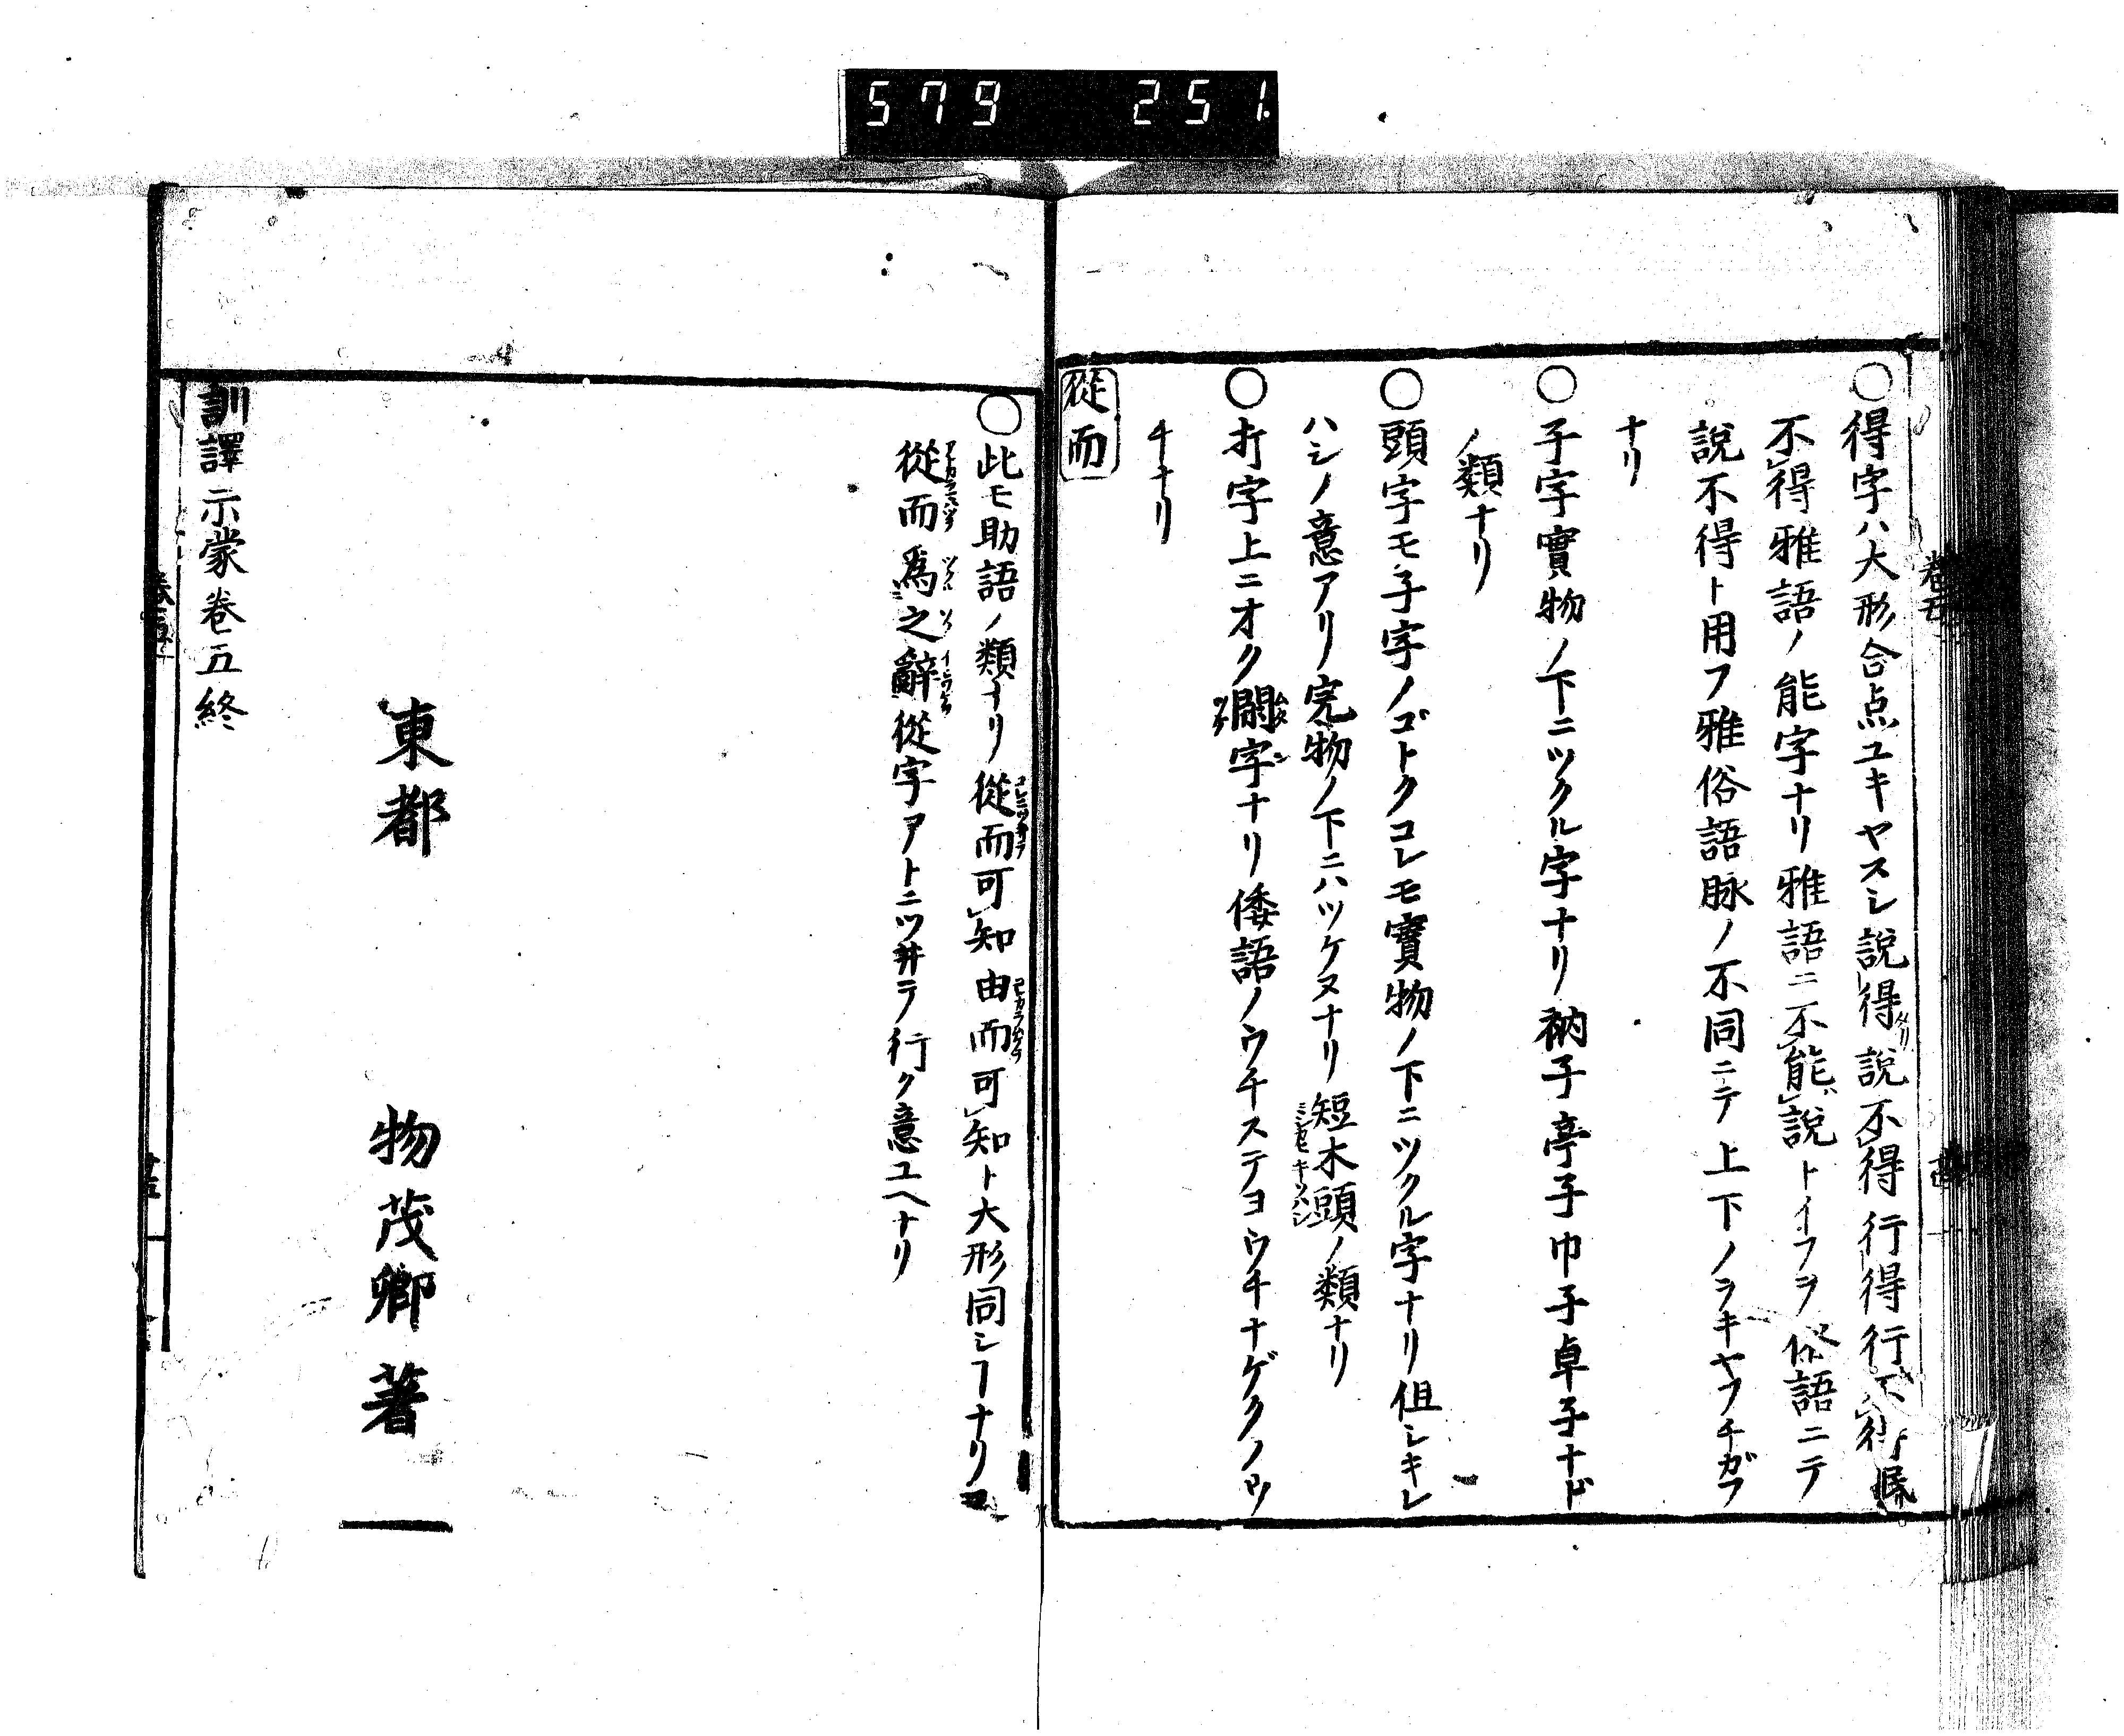 579 251
○得字ハ大形合点ユキヤスシ説得説不得行得行不得
不得雅語ノ能字ナリ雅語ニ不能説トイフヲ俗語ニテ
説不得ト用フ雅俗語脉ノ不同ニテ上下ノヲキヤフチガフ
ナリ
○子字實物ノ下ニツクル字ナリ衲子亭子巾子卓子ナド
ノ類ナリ
○頭字モ子字ノゴトクコレモ實物ノ下ニツクル字ナリ但シキレ
ハシノ意アリ完物ノ下ニハツケヌナリ短木頭ノ類ナリ
○打字上ニオク閙字ナリ倭語ノウチステヨウチナゲクノウ
チナリ
從而
○此モ助語ノ類ナリ從而可知由而可知ト大形同シヿナリ
從而爲之辭從字アトニツ井テ行ク意ユヘナリ
東都 物茂卿著
訓譯示蒙卷五終